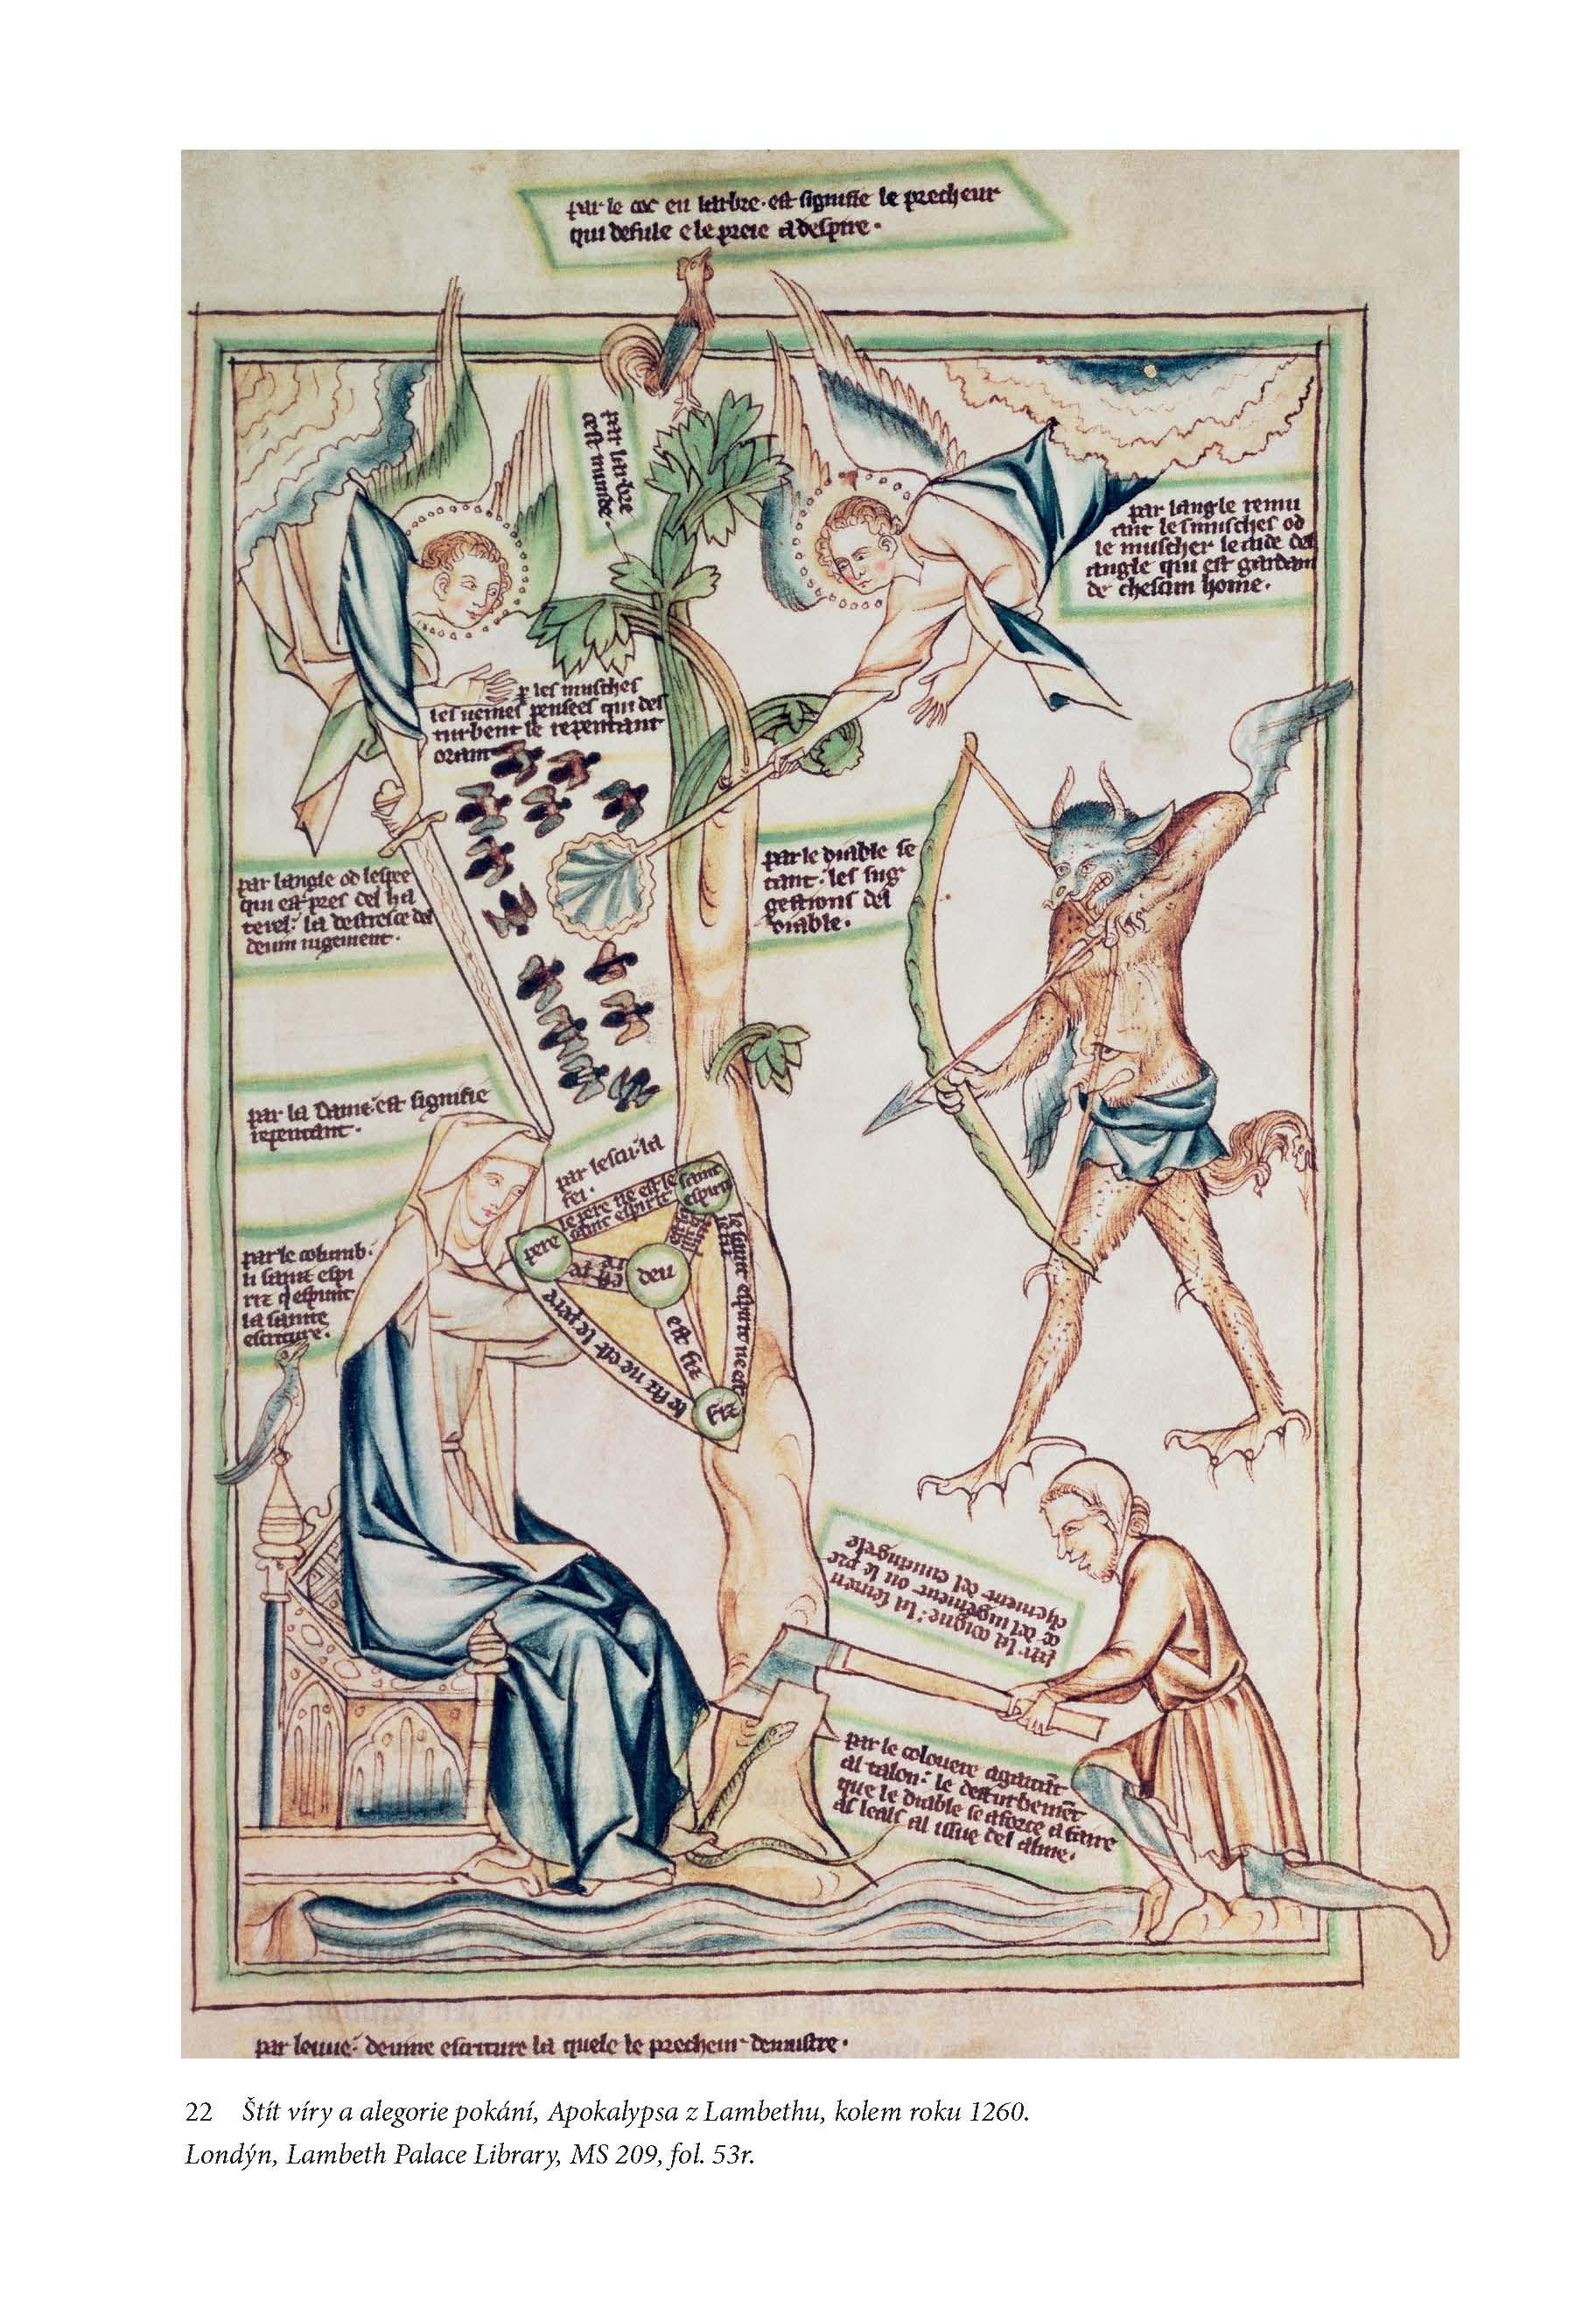 par le coc en larbre. est signifie le precheur
qui defule e le prete a despire.
par larbre
cest munde.
par langle remu
ant les musches od
le muscher le aide del
angle qui est gardein
de chescun home.
les musches
les veines pensees qui des
turbent le repentant
orant
par langle od lespee
qui est pres del ha
terel: la destresce de
deuin iugement.
par le diable se
tant: les sug
gestions del
diable.
par la dame est signifie
repentant.
par lescu: la
fei.
le pere ne est le
saint espirit
saint
espirit
pere
est
deu
est fiz
le fiz ne est le pere
le saint espirit ne est
fiz
par le columb:
li saint espi
rit
la sainte
escriture.
par la coigne: la
ce del iugement ou le pre
chement del euuangele
par le colouere agaitant
al talon: le desturbement
que le diable se aforce a faire
as leals al issue del alme.
par leuue: deuine escriture la quele le precheur demustre.
22 Štít víry a alegorie pokání, Apokalypsa z Lambethu, kolem roku 1260.
Londýn, Lambeth Palace Library, MS 209, fol. 53r.